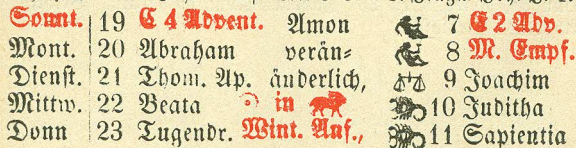 Sonnt. 19 C 4 Advent. Amon 7 E 2 Adv.
Mont. 20 Abraham verän- 8 M. Empf.
Dienst. 21 Thom. Ap. änderlich, 9 Joachim
Mittw. 22 Beata in 10 Juditha
Donn 23 Tugendr. Wint. Anf., 11 Sapientia